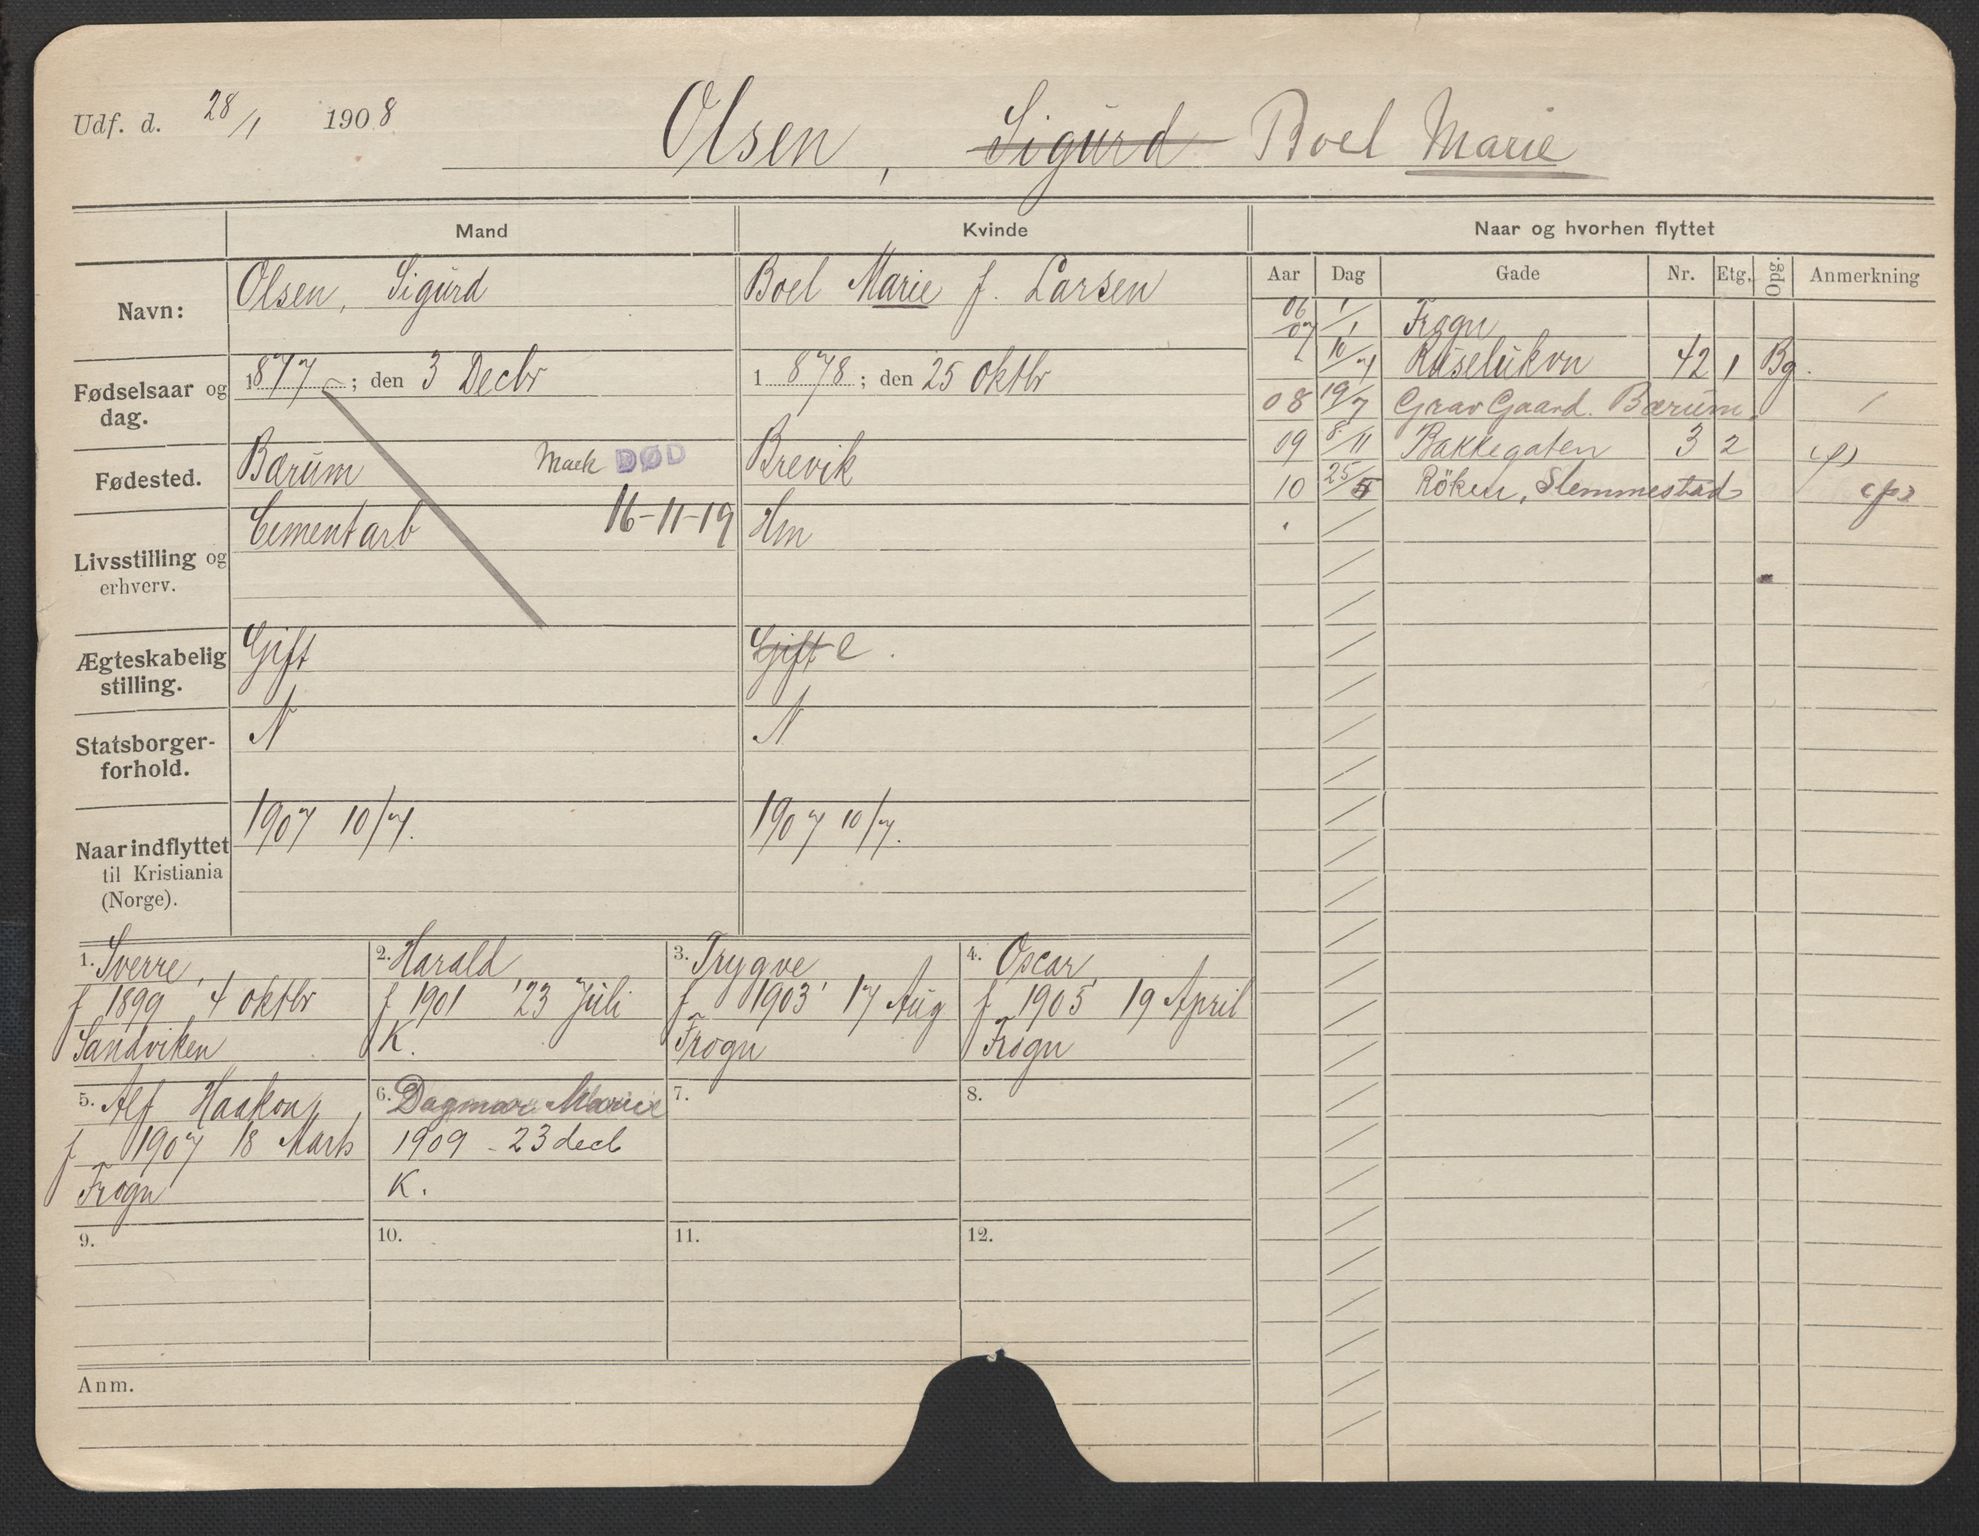 Udf. d. 28/1 1908
Olsen, Sigurd Boel Marie
Mand
Kvinde
Naar og hvorhen flyttet
Navn:
Olsen, Sigurd
Boel Marie f. Larsen
Fødselsaar og dag.
1877; den 3 Decbr
1878; den 25 Oktbr
Fødested.
Bærum
DØD
Brevik
Livsstilling og erhverv.
Cementarb
16-11-19
Hm
Ægteskabelig stilling.
Gift
Gift e.
Statsborgerforhold.
N
N
Naar indflyttet til Kristiania (Norge).
1907 10/7.
1907 10/7.
Aar Dag Gade Nr. Etg. Opg. Anmerkning
06/07 1/1 Frogn
10/7 Ruselukvn 42 1 Bg.
08 19/7 Grav Gaard. Bærum.
09 8/11 Bakkegaten 3 2
10 25/5 Röken, Slemmestad
1. Sverre,
f 1899, 4 oktbr
Sandviken
2. Harald
f 1901 23 Juli
K.
3. Trygve
f 1903 17 Aug
Frogn
4. Oscar
f 1905 19 April
Frogn
5. Alf Haakon,
f 1907 18 Marts
Frogn
6. Dagmar Marie
1909 - 23 decb
K.
7.
8.
9.
10.
11.
12.
Anm.